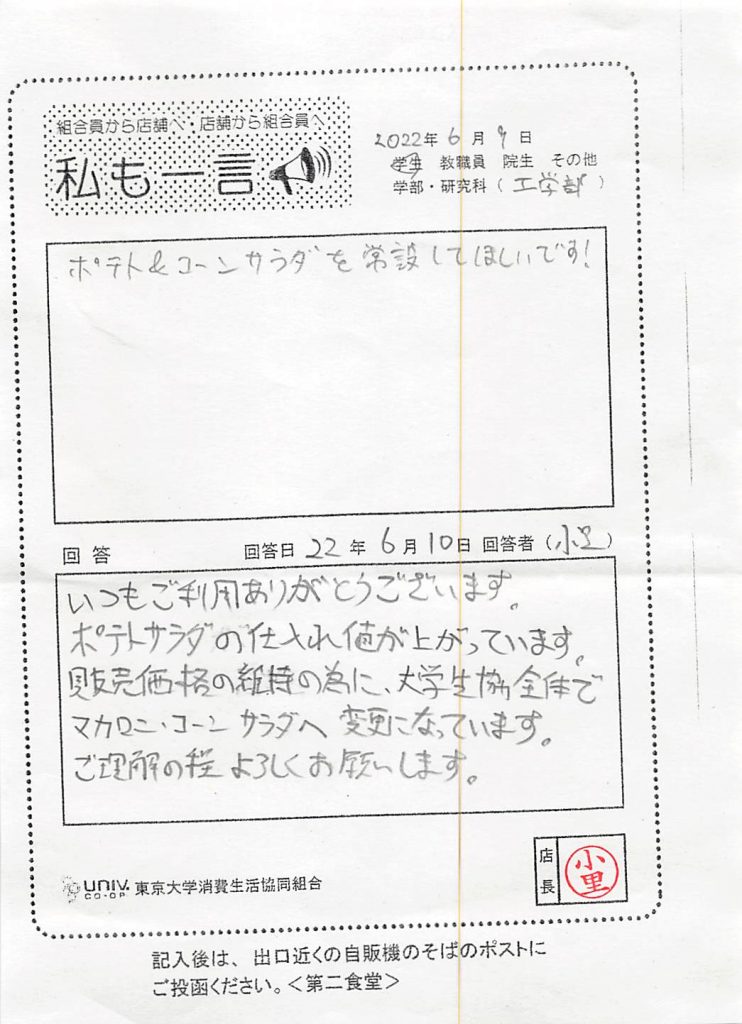 組合員から店舗へ・店舗から組合員へ
私も一言
2022年 6月 9日
学生 教職員 院生 その他
学部・研究科（工学部）
ポテト&コーンサラダを常設してほしいです!
回答 回答日 22年 6月10日 回答者（小里）
いつもご利用ありがとうございます。
ポテトサラダの仕入れ値が上がっています。
販売価格の維持の為に、大学生協全体で
マカロニ・コーンサラダへ変更になっています。
ご理解の程よろしくお願いします。
店長 小里
univ. CO-OP 東京大学消費生活協同組合
記入後は、出口近くの自販機のそばのポストに
ご投函ください。＜第二食堂＞